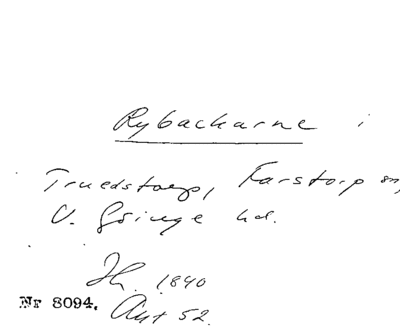 Rybackarne i
Truedstorp, Farstorp sn,
V. Göinge hd.
Th. 1840
Nr 8094. Ant 52.